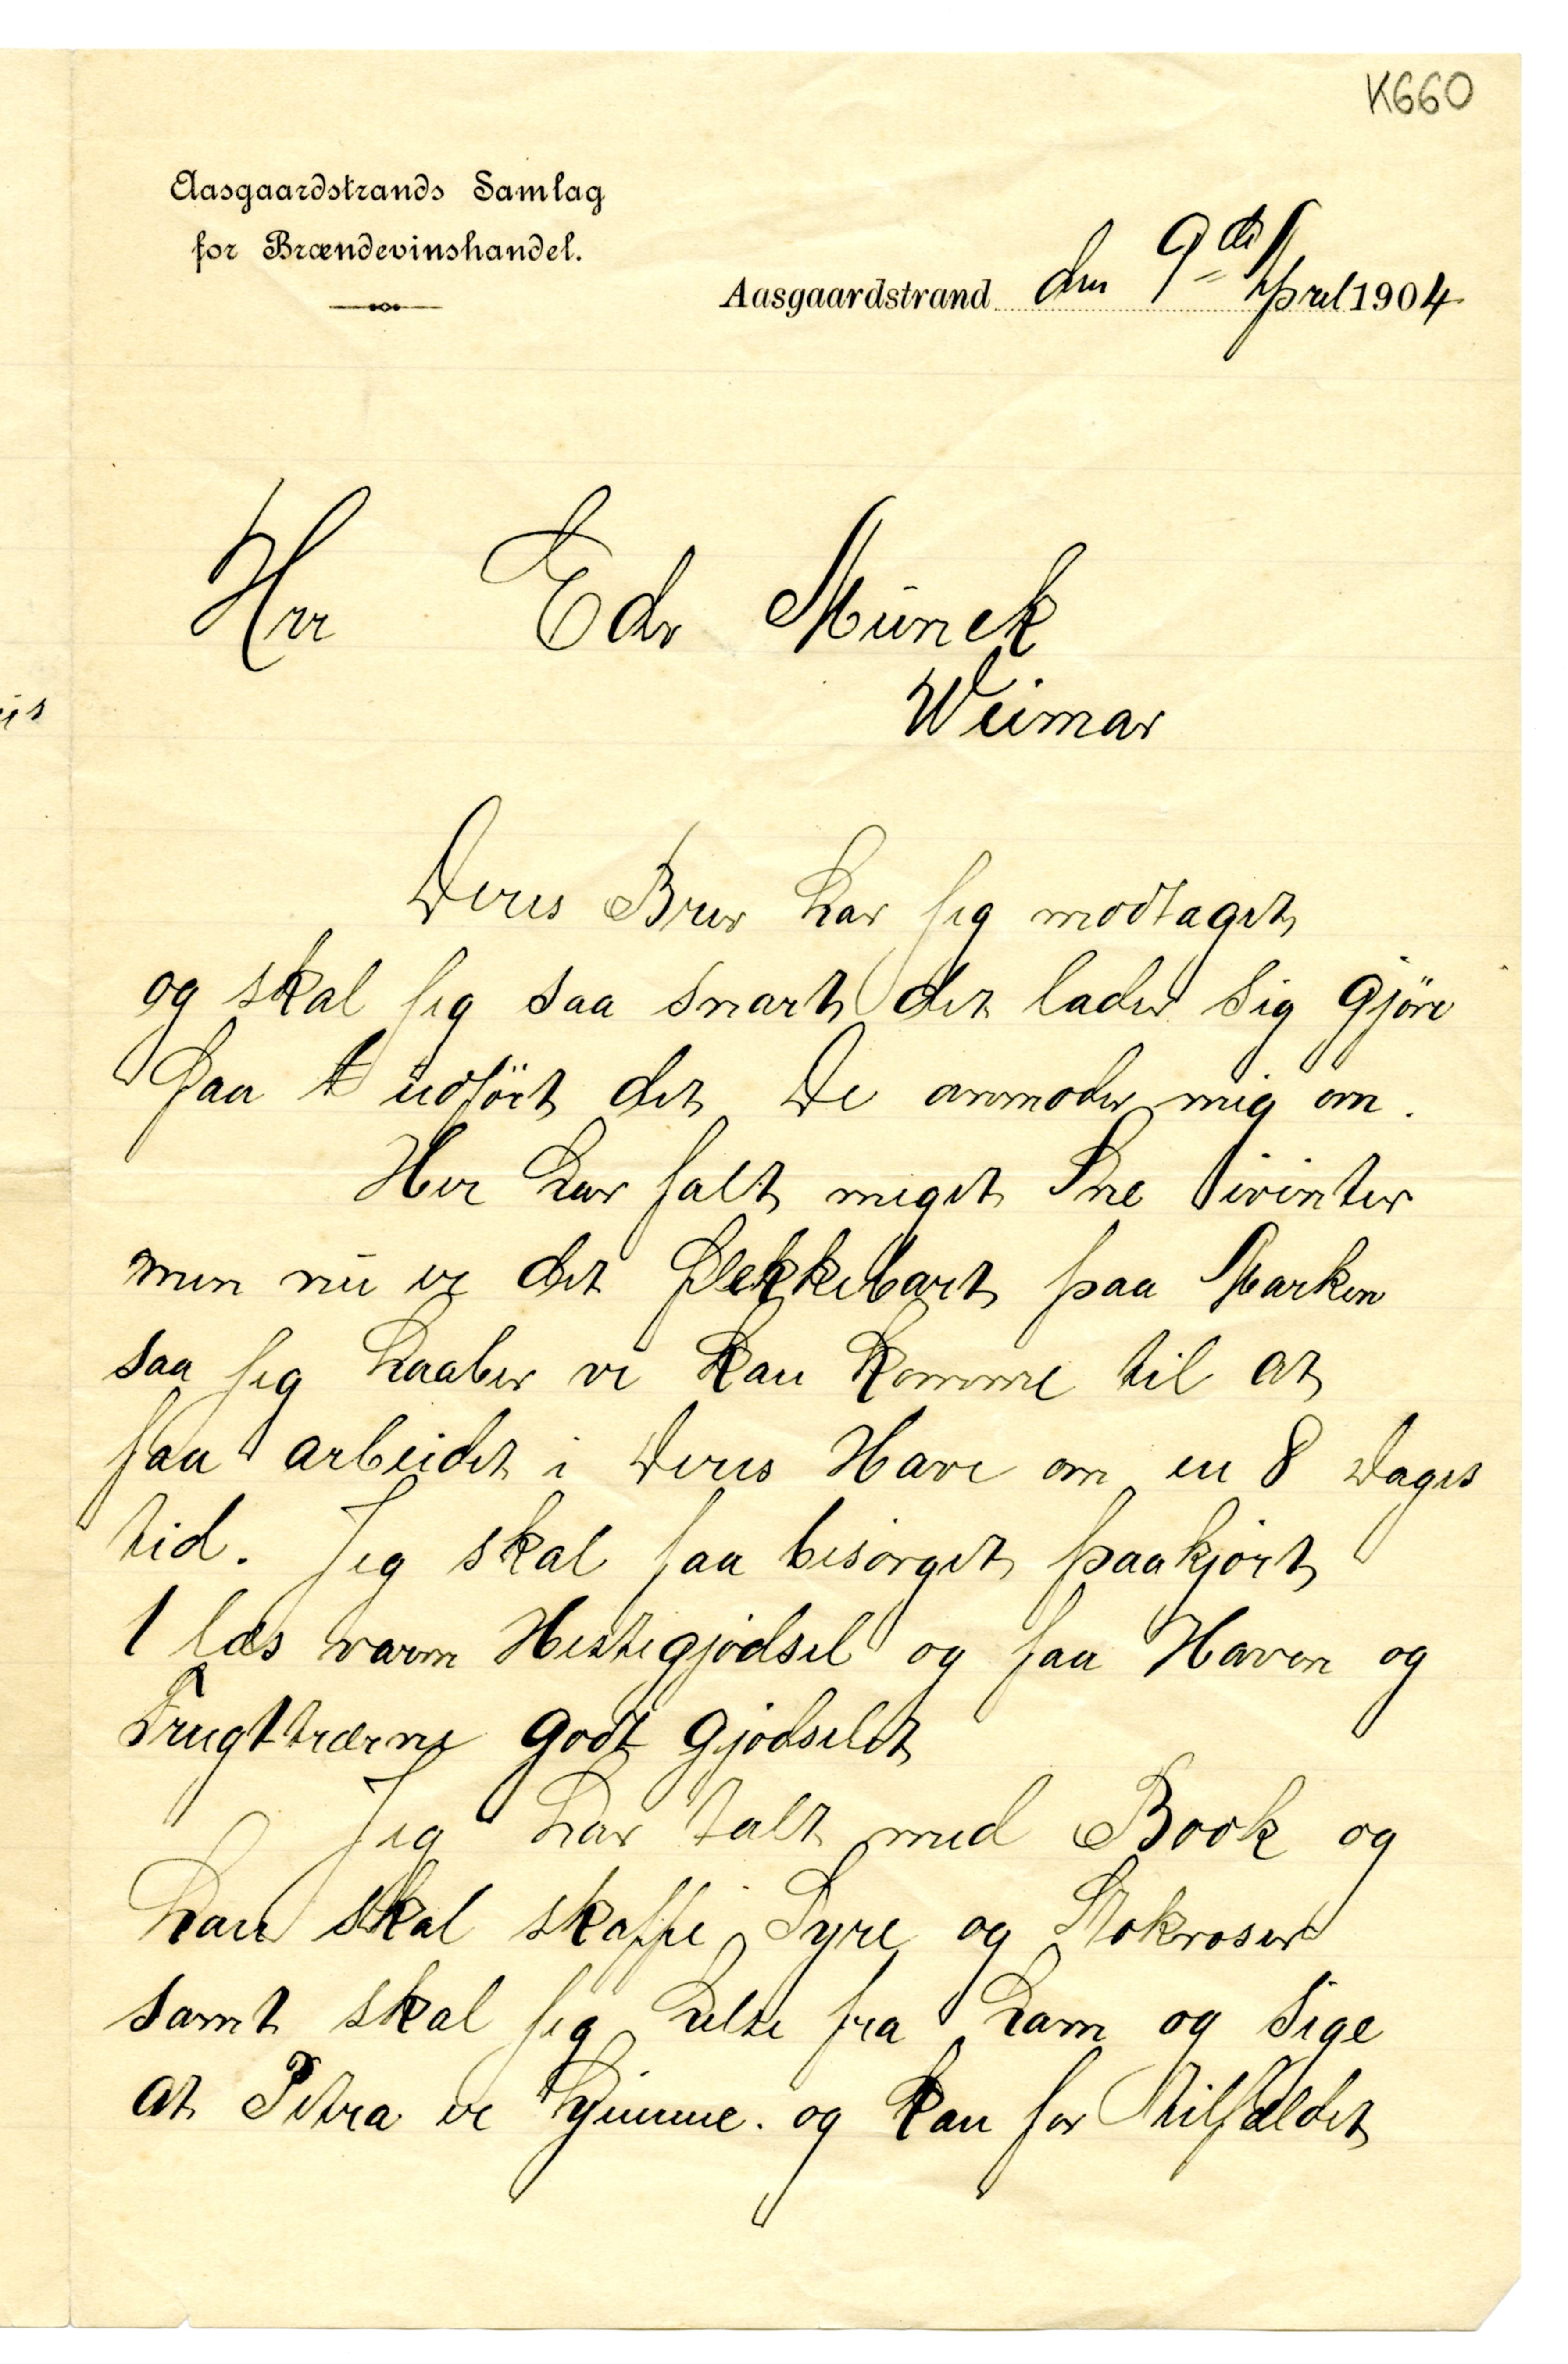 K660
Aasgaardstrands Samlag
for Brændevinshandel.
Aasgaardstrand den 9de April 1904
Hrr Edv Munck
Weimar
Deres Brev har jeg modtaget
og skal jeg saa snart det lader sig gjöre
faa udfört det De anmoder mig om.
Her har falt meget Sne ivinter
men nu er det flekkebart paa Marken
saa jeg haaber vi kan komme til at
faa arbeidet i Deres Have om en 8 Dages
tid. Jeg skal faa besörget paakjört
1 læs varm Hestegjödsel og faa Haven og
Frugttrærne godt gjödselet
Jeg har talt med Book og
han skal skaffe Syre og Stokroser
samt skal jeg helse fra ham og sige
at Petra er hjemme. og kan for tilfældet